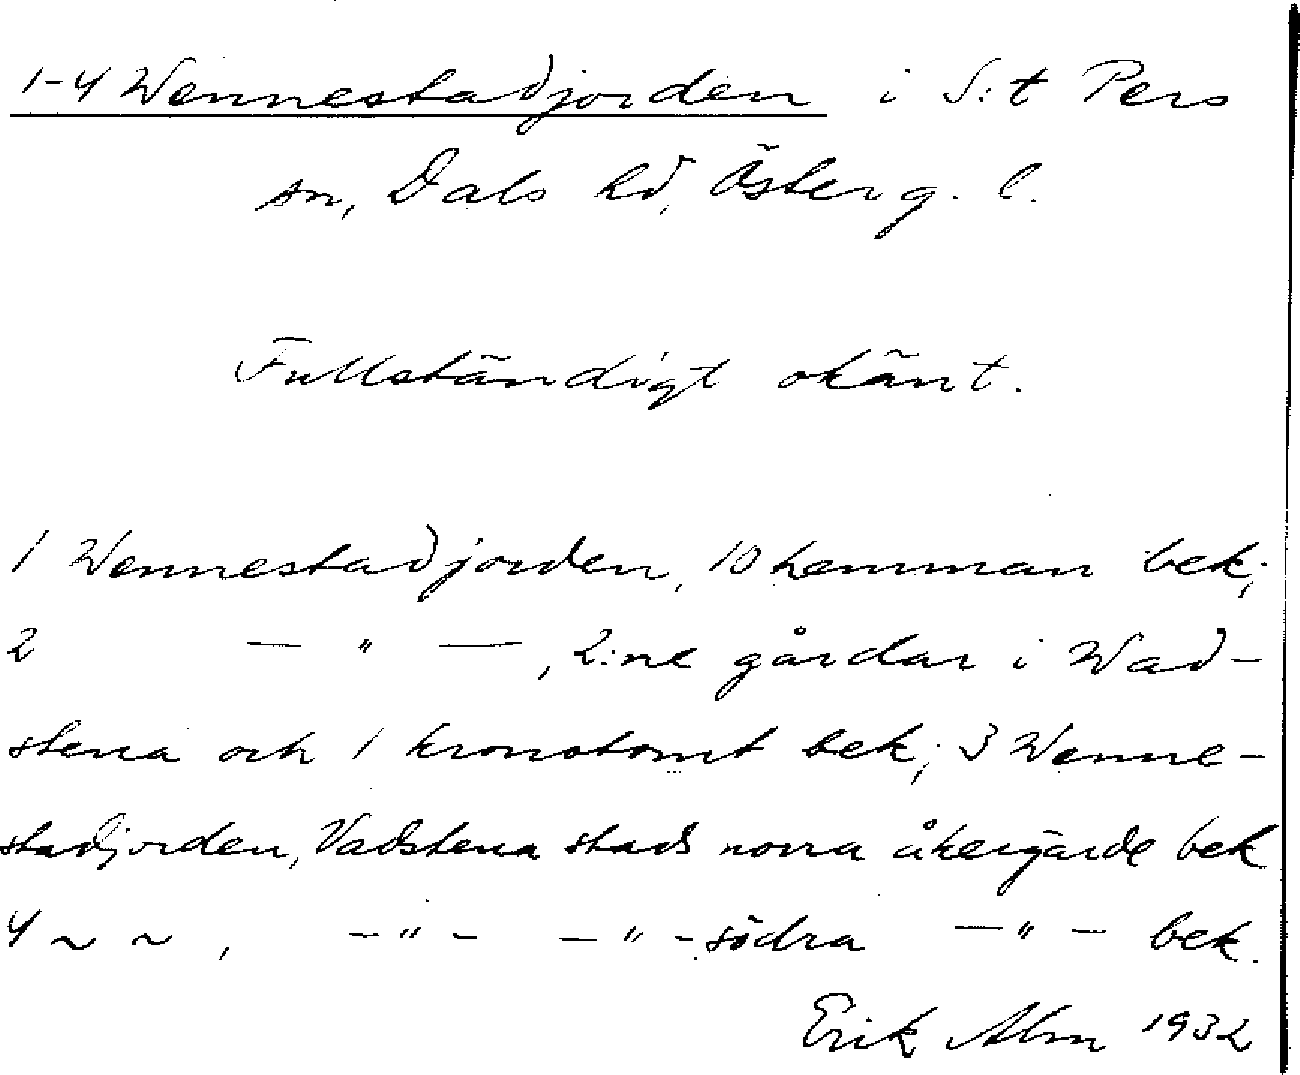 1-4 Wennestadjorden i S:t Pers
sn, Dals hd, Österg. l.
Fullständigt okänt.
1 Wennestadjorden, 10 hemman bek;
2 — " —, 2:ne gårdar i Wad-
stena och 1 kronotomt bek; 3 Wenne-
stadjorden, Vadstena stads norra åkergärde bek
4 ~ ~, - " - - " - södra — " — bek.
Erik Alm 1932